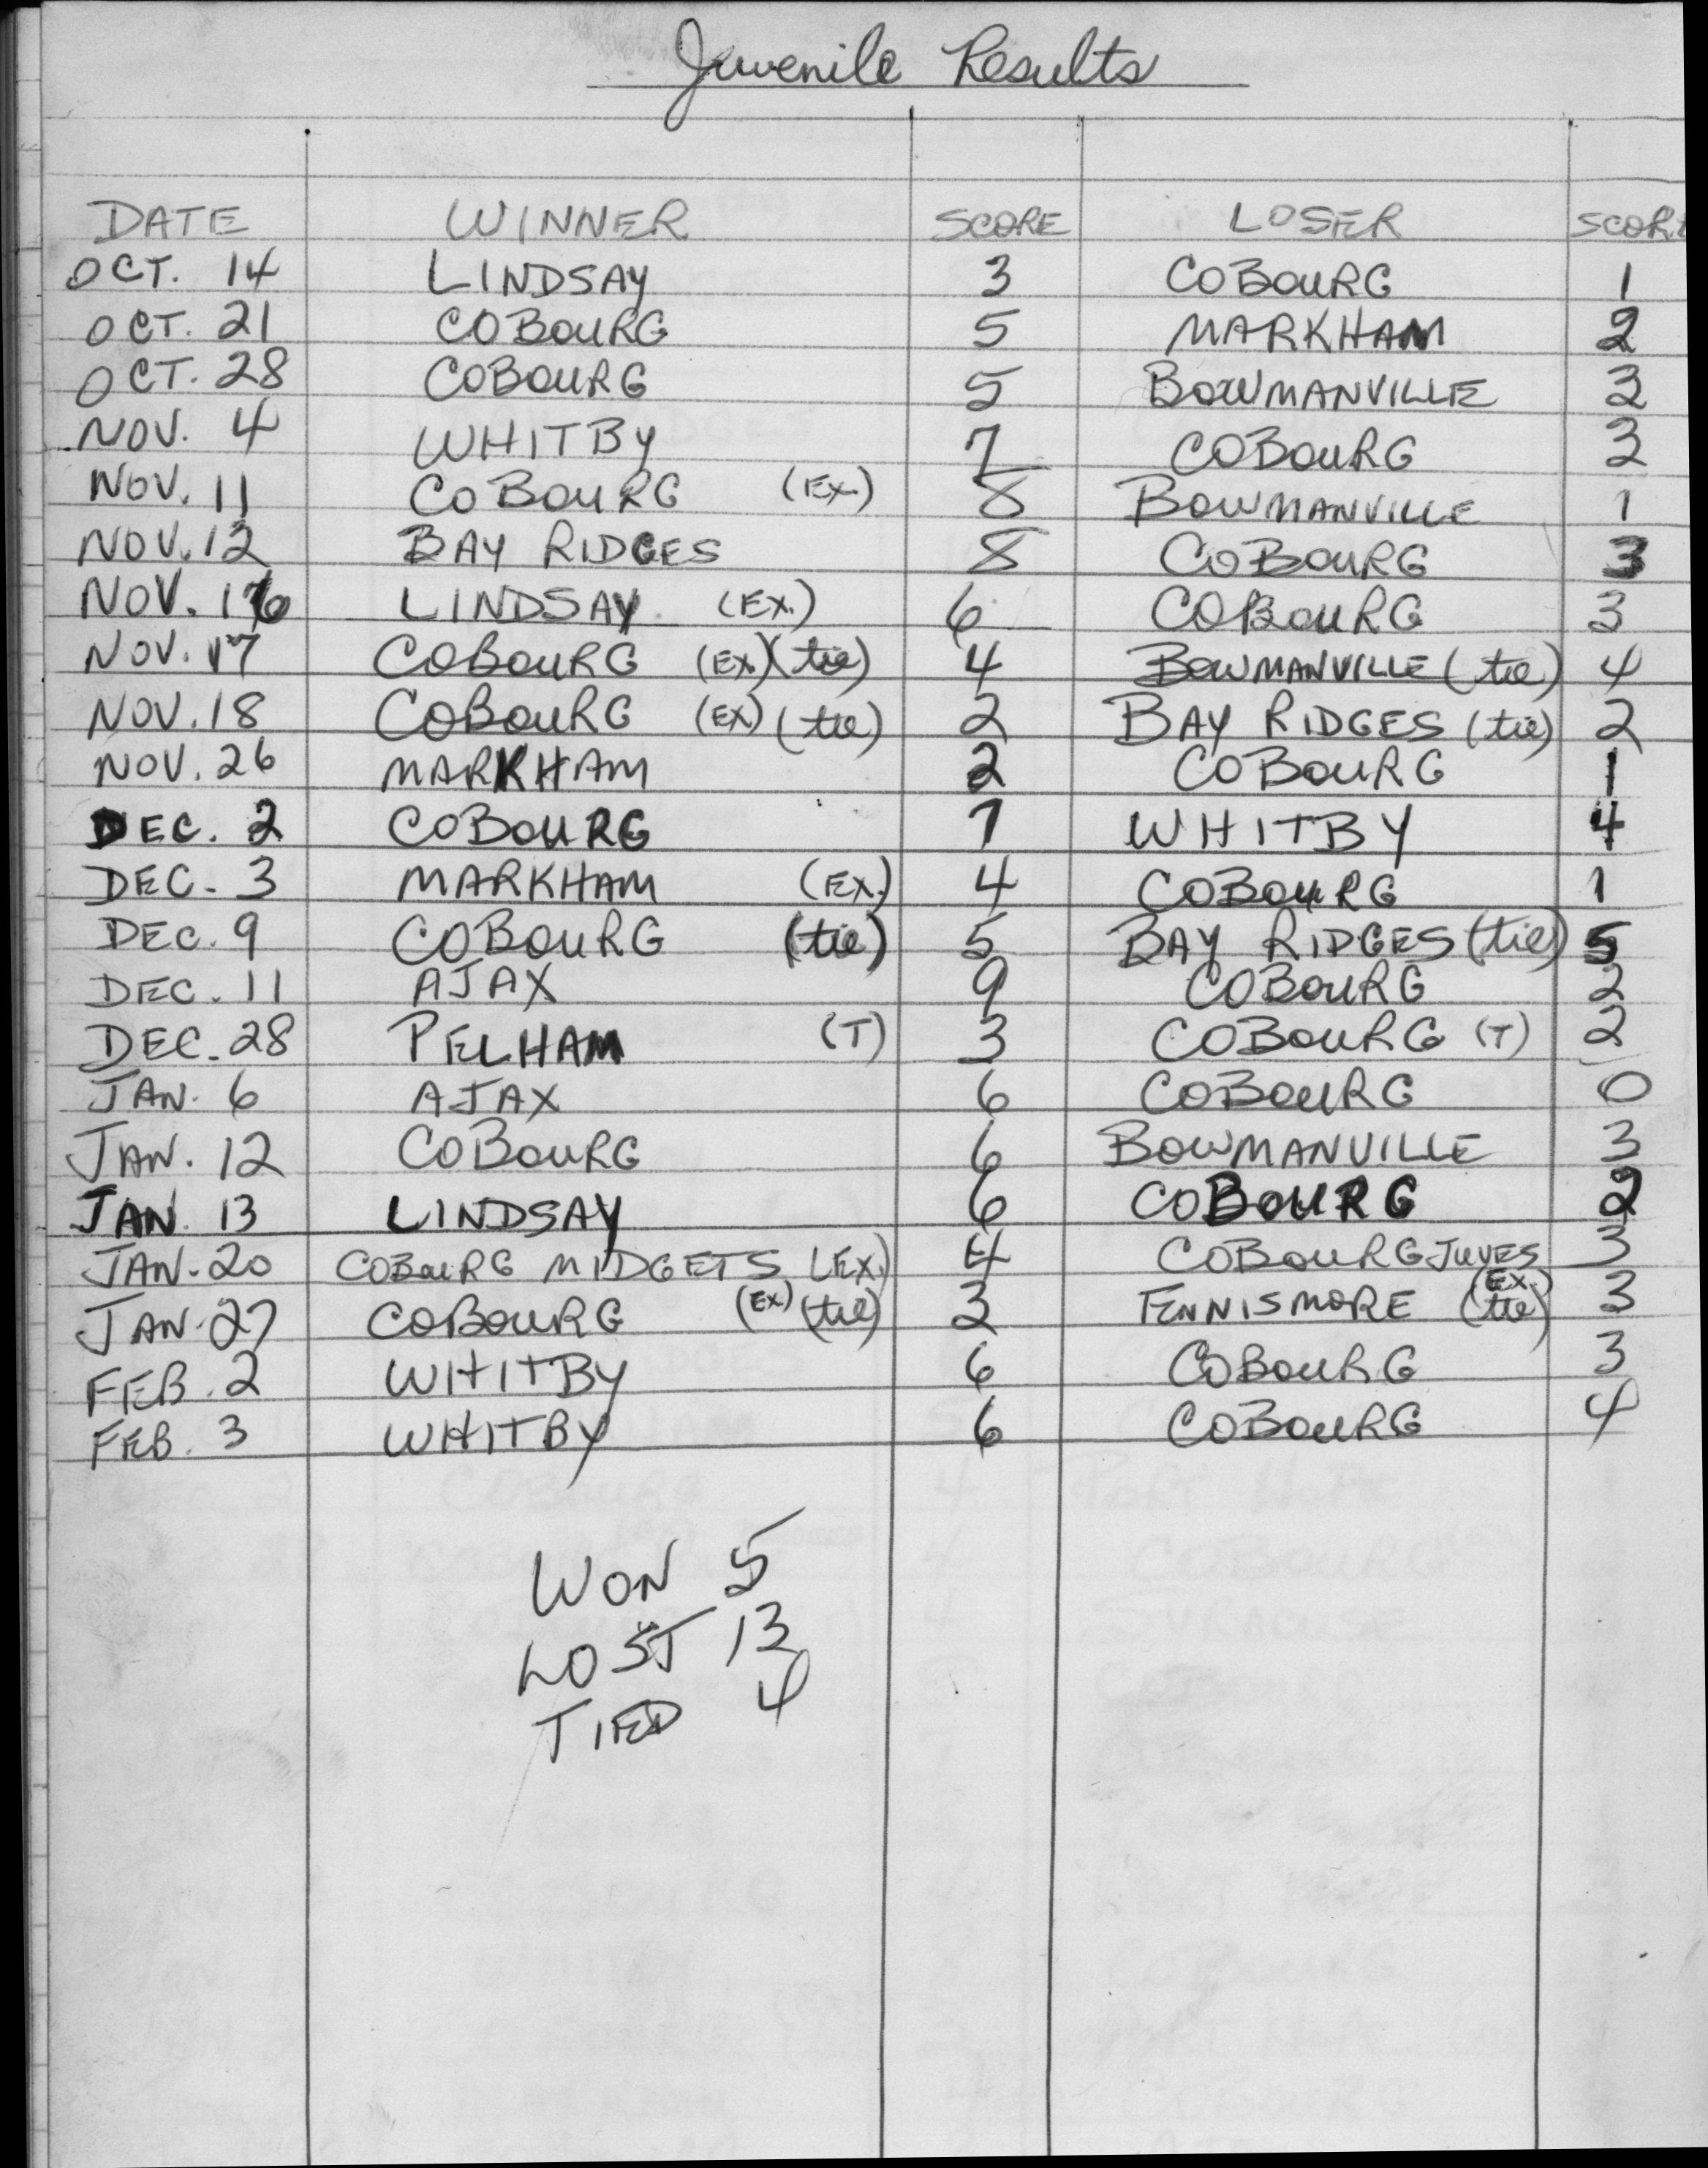 Juvenile Results
DATE WINNER SCORE LOSER SCORE
OCT. 14 LINDSAY 3 COBOURG 1
OCT. 21 COBOURG 5 MARKHAM 2
OCT. 28 COBOURG 5 BOWMANVILLE 3
NOV. 4 WHITBY 7 COBOURG 3
NOV. 11 COBOURG (EX.) 8 BOWMANVILLE 1
NOV. 12 BAY RIDGES 8 COBOURG 3
NOV. 16 LINDSAY (EX.) 6 COBOURG 3
NOV. 17 COBOURG (EX.) (tie) 4 BOWMANVILLE (tie) 4
NOV. 18 COBOURG (EX) (tie) 2 BAY RIDGES (tie) 2
NOV. 26 MARKHAM 2 COBOURG 1
DEC. 2 COBOURG 7 WHITBY 4
DEC. 3 MARKHAM (EX.) 4 COBOURG 1
DEC. 9 COBOURG (tie) 5 BAY RIDGES (tie) 5
DEC. 11 AJAX 9 COBOURG 2
DEC. 28 PELHAM (T) 3 COBOURG (T) 2
JAN. 6 AJAX 6 COBOURG 0
JAN. 12 COBOURG 6 BOWMANVILLE 3
JAN. 13 LINDSAY 6 COBOURG 2
JAN. 20 COBOURG MIDGETS (EX.) 4 COBOURG JUVES 3
JAN. 27 COBOURG (EX) (tie) 3 ENNISMORE (EX. tie) 3
FEB. 2 WHITBY 6 COBOURG 3
FEB. 3 WHITBY 6 COBOURG 4
WON 5
LOST 13
TIED 4